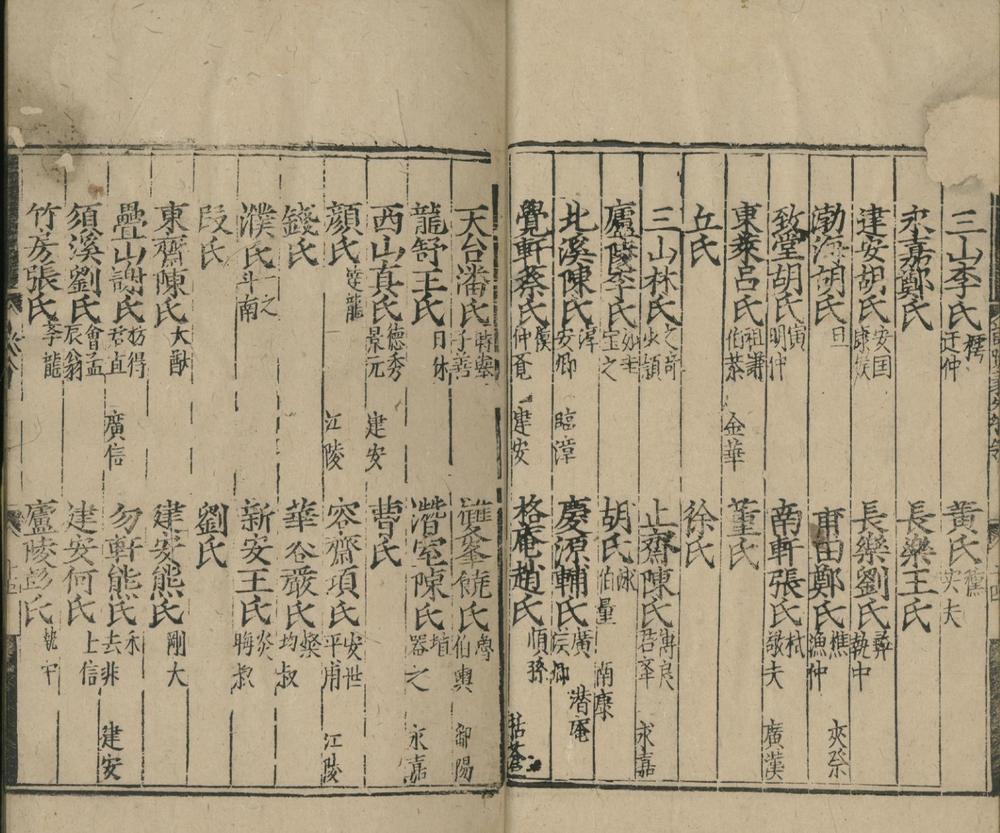 三山李氏 樗 迂仲 黃氏 櫄 實夫
永嘉鄭氏 長樂王氏
建安胡氏 安国 康侯 長樂劉氏 彝 執中
渤海胡氏 旦 莆田鄭氏 樵 漁仲 夾漈
致堂胡氏 寅 明仲 南軒張氏 栻 敬夫 廣漢
東萊呂氏 祖謙 伯恭 金華 董氏
丘氏 徐氏
三山林氏 之奇 少穎 止齋陳氏 傅良 君舉 永嘉
廬陵李氏 如圭 宝之 胡氏 泳 伯量 南康
北溪陳氏 淳 安卿 臨漳 慶源輔氏 廣 漢卿 潛庵
覺軒蔡氏 模 仲覺 建安 格庵趙氏 順孫 括蒼
天台潘氏 時舉 子善 雙峯饒氏 魯 伯輿 鄱陽
龍舒王氏 日休 潛室陳氏 埴 器之 永嘉
西山真氏 德秀 景元 建安 曹氏
顏氏 達龍 江陵 容齋項氏 安世 平甫 江陵
錢氏 華谷嚴氏 粲 坦叔
濮氏 一之 斗南 新安王氏 炎 晦叔
段氏 劉氏
東齋陳氏 大猷 建安熊氏 剛大
疊山謝氏 枋得 君直 廣信 勿軒熊氏 禾 去非 建安
須溪劉氏 會孟 辰翁 建安何氏 士信
竹房張氏 季龍 廬陵彭氏 執中